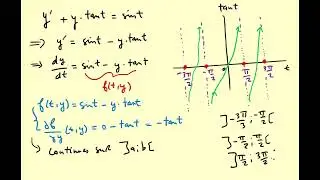 y' + y.tant = sint
⇒ y' = sint - y.tant
⇒ dy/dt = sint - y.tant
f(t,y)
f(t,y) = sint - y.tant
∂f/∂y (t,y) = 0 - tant = -tant
continues sur ]a;b[
tant
-3π/2 -π/2 π/2 3π/2 t
]-3π/2; -π/2[
]-π/2; π/2[
]π/2; 3π/2[